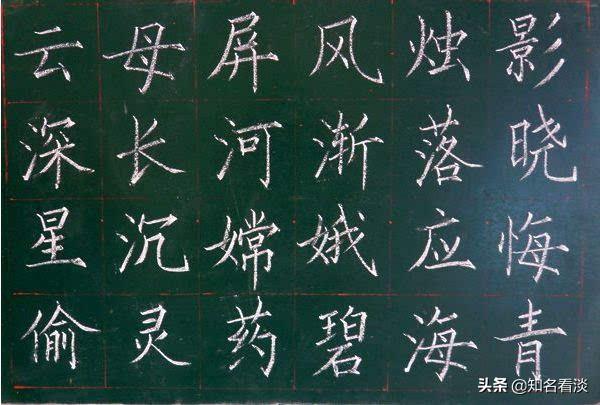 云母屏风烛影
深长河渐落晓
星沉嫦娥应悔
偷灵药碧海青
头条 @知名看淡